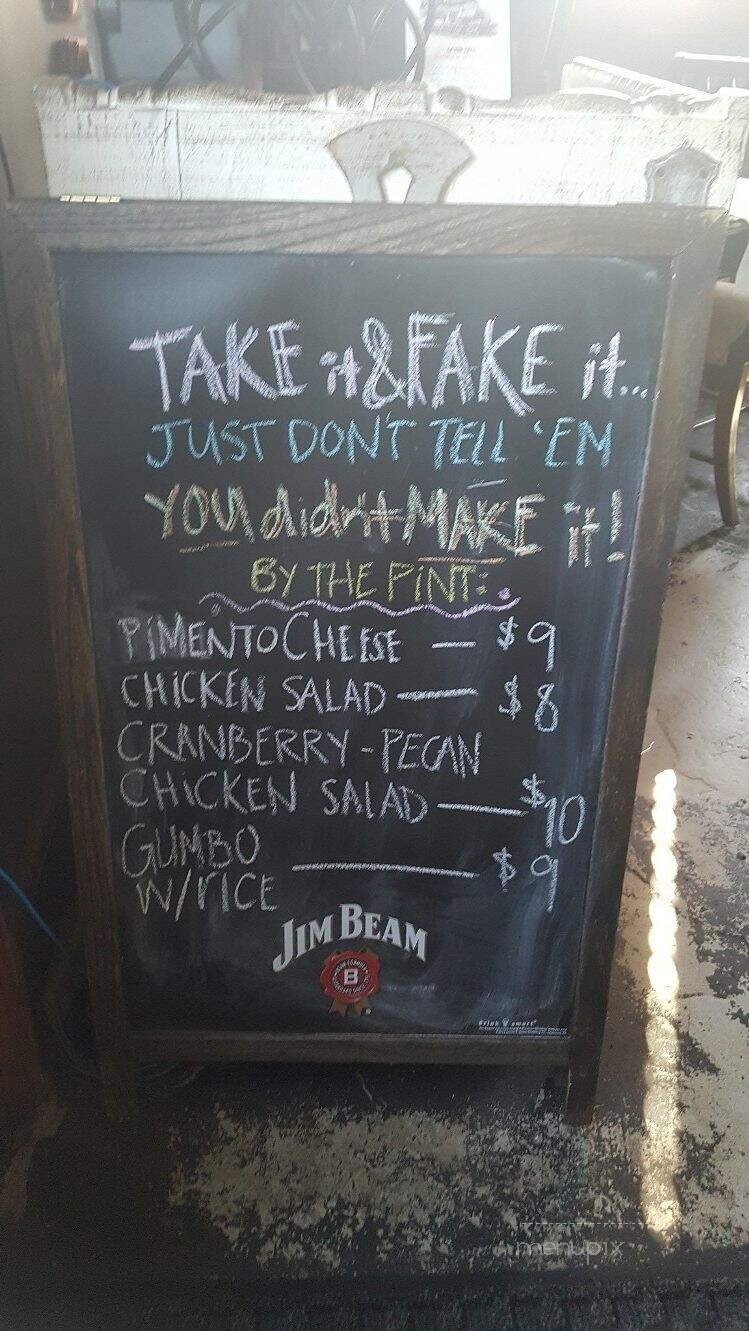 TAKE it & FAKE it...
JUST DON'T TELL 'EM
YOU didn't MAKE it!
BY THE PINT:
PIMENTO CHEESE — $9
CHICKEN SALAD — $8
CRANBERRY-PECAN
CHICKEN SALAD — $10
GUMBO
W/RICE — $9
JIM BEAM
B
drink smart
menupix